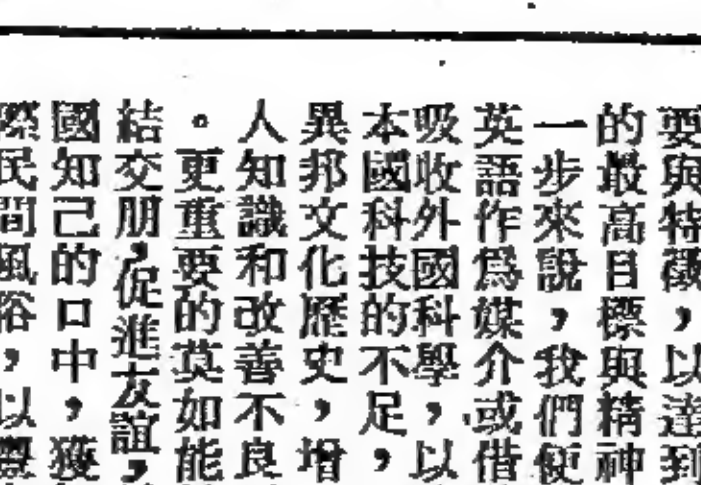 要與特徵，以達到
的最高目標與精神
一步來說，我們便
英語作為媒介或借
吸收外國科學，以
本國科技的不足，
異邦文化歷史，增
人知識和改善不良
。更重要的莫如能
結交朋，促進友誼，
國知己的口中，獲
際民間風俗，以